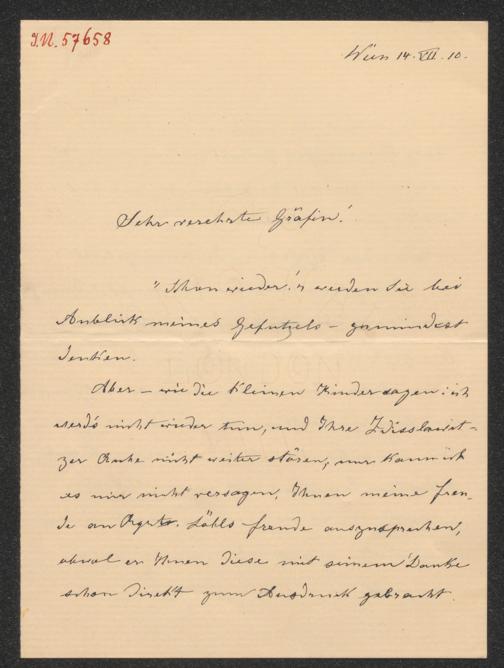 I.N. 57658
Wien 14. VII. 10.
Sehr verehrte Gräfin!
"Schon wieder!" werden Sie bei
Anblick meines Gefutzels – zumindest
denken.
Aber – wie die kleinen Kinder sagen: ich
werd's nicht wieder tun, und Ihre Zdisslawit-
zer Ruhe nicht weiter stören, nur kann ich
es mir nicht versagen, Ihnen meine Freu-
de an freude auszusprechen,
obwol er Ihnen diese mit seinem Danke
schon direkt zum Ausdruck gebracht.